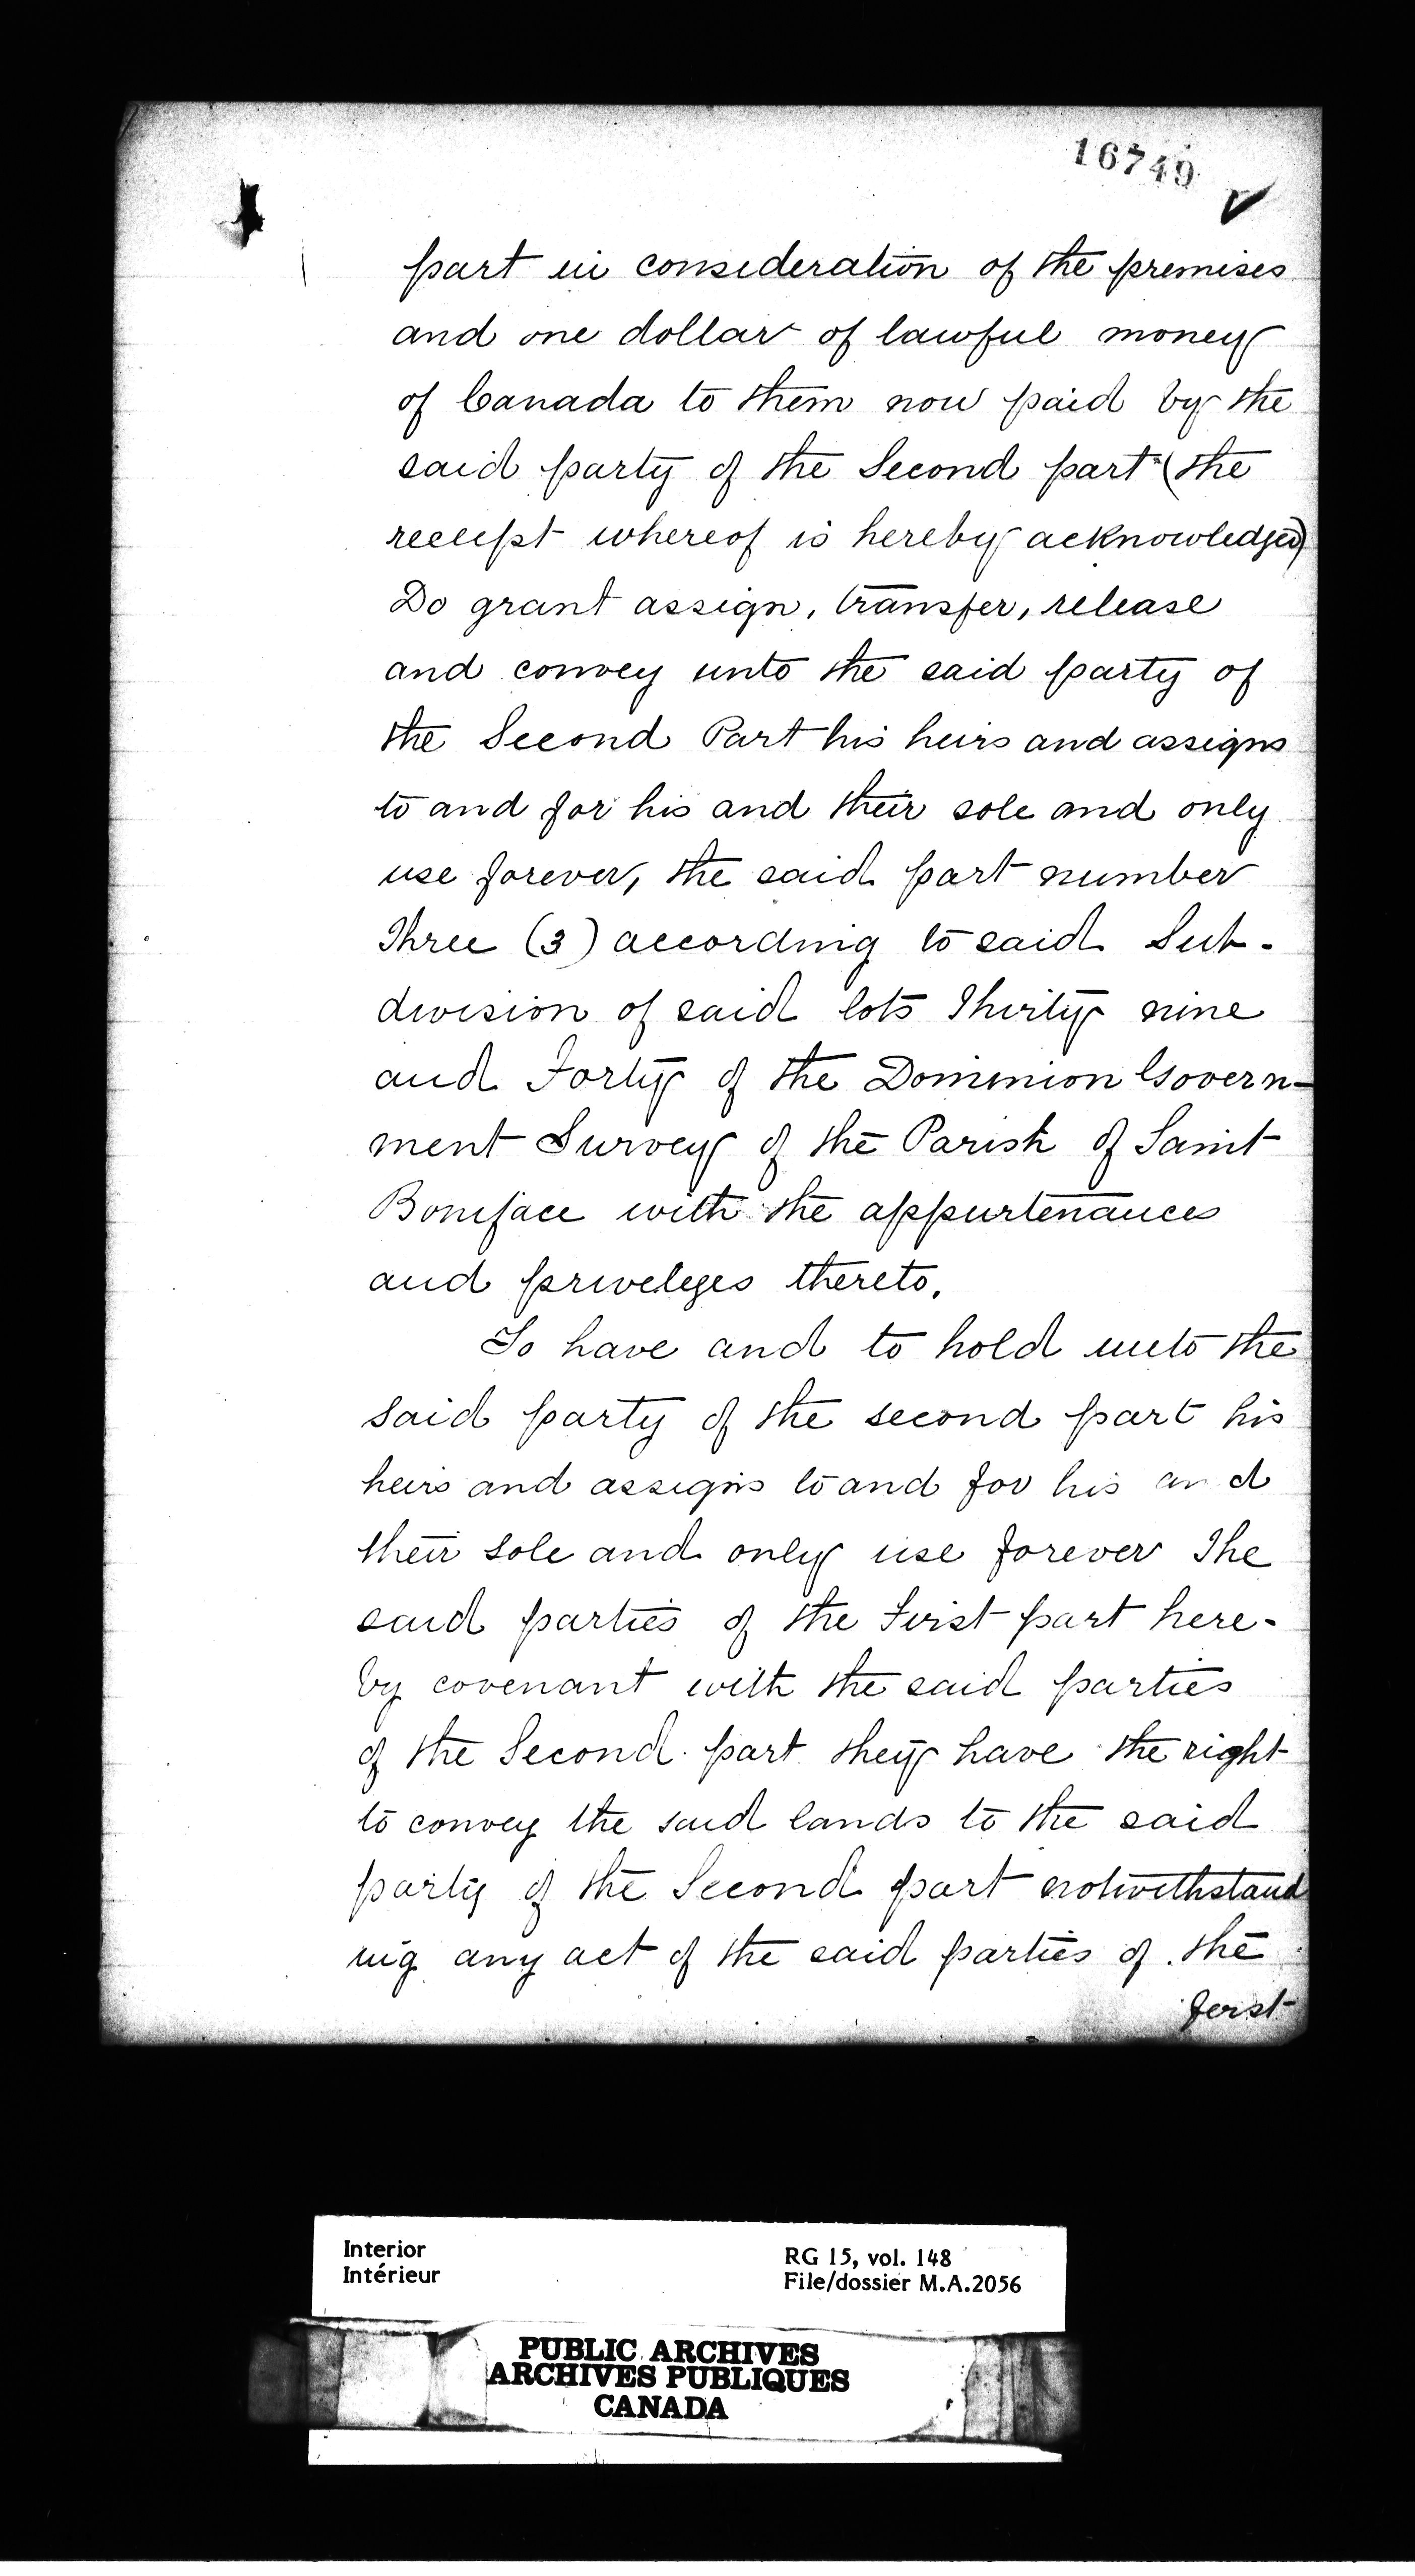 16749
part in consideration of the premises
and one dollar of lawful money
of Canada to them now paid by the
said party of the Second part (the
receipt whereof is hereby acknowledged)
Do grant assign, transfer, release
and convey unto the said party of
the Second Part his heirs and assigns
to and for his and their sole and only
use forever, the said part number
Three (3) according to said Sub-
division of said lots Thirty nine
and Forty of the Dominion Govern-
ment Survey of the Parish of Saint
Boniface with the appurtenances
and priveleges thereto.
To have and to hold unto the
said party of the second part his
heirs and assigns to and for his and
their sole and only use forever The
said parties of the First part here-
by covenant with the said parties
of the Second part they have the right
to convey the said lands to the said
party of the Second part notwithstand
ing any act of the said parties of the
first
Interior
Intérieur
RG 15, vol. 148
File/dossier M.A.2056
PUBLIC ARCHIVES
ARCHIVES PUBLIQUES
CANADA